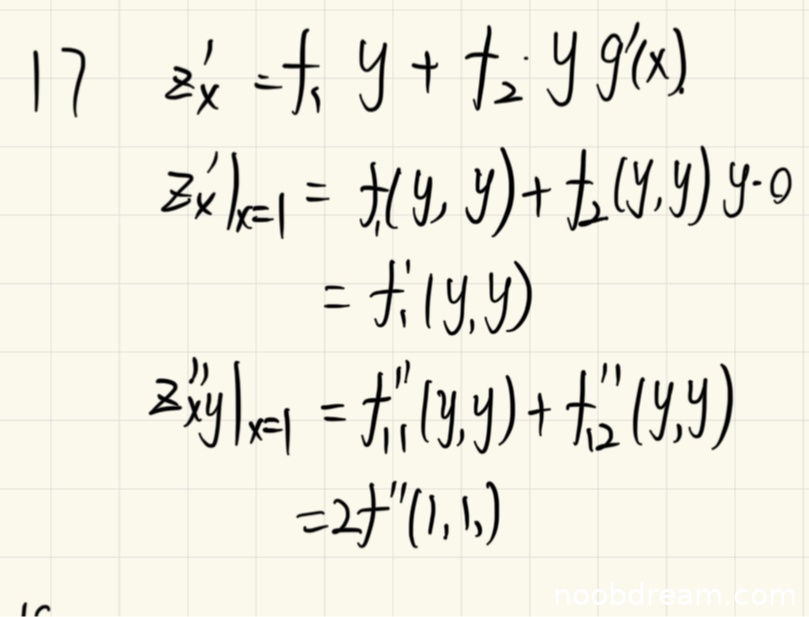 17 z'x = f1 y + f2 · y g'(x).
z'x|x=1 = f1(y, y) + f2(y,y) y·0
= f'1(y,y)
z''xy|x=1 = f''11(y,y) + f''12(y,y)
=2f''(1,1,)
noobdream.com